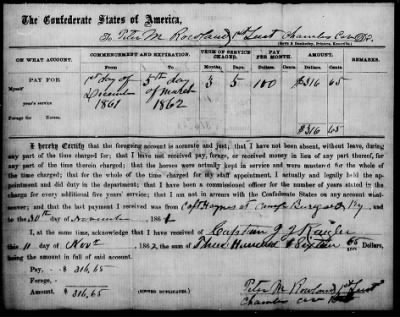 The Confederate States of America,
To Peter M Rowland 1st Lieut Chambers Cav Dr.
ON WHAT ACCOUNT. COMMENCEMENT AND EXPIRATION. TERM OF SERVICE CHARGED. PAY PER MONTH. AMOUNT. REMARKS.
Months. Days. Dollars. Cents. Dollars. Cents.
PAY FOR
Myself
year's service
Forage for Horses.
1st day of December 1861
5th day of March 1862
3 5 100 $316 65
$316 65
I hereby Certify that the foregoing account is accurate and just; that I have not been absent, without leave, during
any part of the time charged for; that I have not received pay, forage, or received money in lieu of any part thereof, for
any part of the time therein charged; that the horses were actually kept in service and were mustered for the whole of
the time charged; that for the whole of the time charged for my staff appointment, I actually and legally held the ap-
pointment and did duty in the department; that I have been a commissioned officer for the number of years stated in the charge
for every additional five years' service; that I am not in arrears with the Confederate States on any account whatso-
ever; and that the last payment I received was from Capt Haynes at Camp Ky
and to the 30th day of November 1861
I, at the same time, acknowledge that I have received of Captain J J
this 11 day of Novr 1862 the sum of Three Hundred & Sixteen 65 Dollars,
being the amount in full of said account.
Pay, - $ 316,65
Forage,
Amount, $ 316,65
(SIGNED DUPLICATES.)
Peter M Rowland 1st Lieut
Chambers Cav